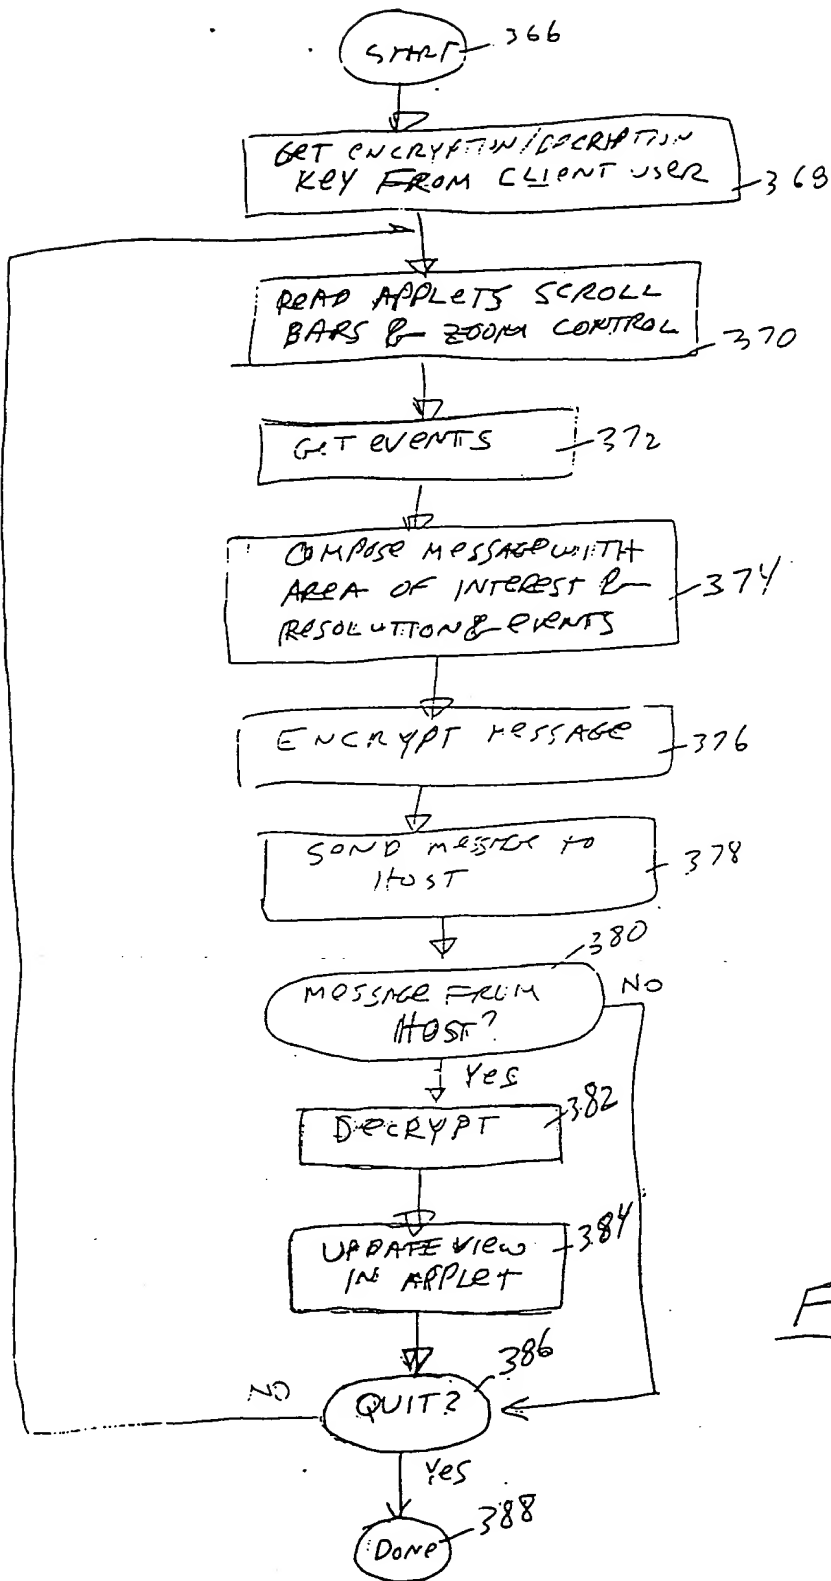 START
366
GET ENCRYPTION/DECRYPTION
KEY FROM CLIENT USER
368
READ APPLETS SCROLL
BARS & ZOOM CONTROL
370
GET EVENTS
372
COMPOSE MESSAGE WITH
AREA OF INTEREST &
RESOLUTION & EVENTS
374
ENCRYPT MESSAGE
376
SEND MESSAGE TO
HOST
378
380
MESSAGE FROM
HOST?
NO
Yes
DECRYPT
382
UPDATE VIEW
IN APPLET
384
386
NO
QUIT?
Yes
388
DONE
F